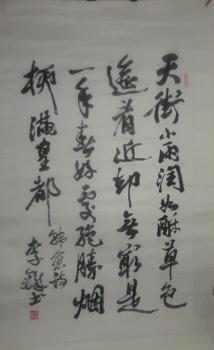 天街小雨润如酥草色
遥看近却无最是
一年春好处绝胜烟
柳满皇都
韩愈诗
李铎书